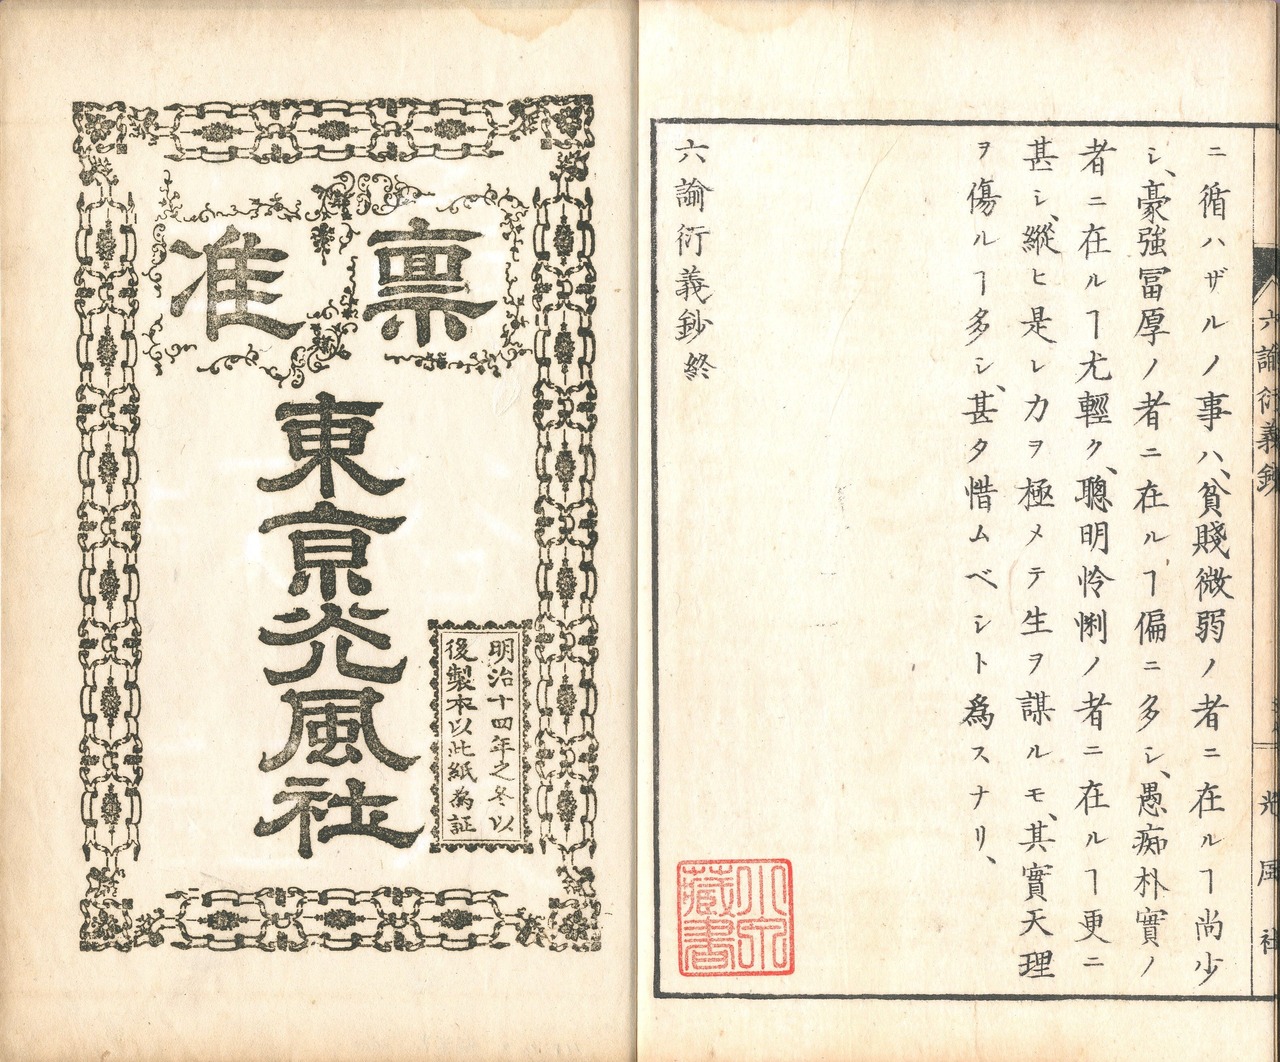 ニ循ハザルノ事ハ、貧賤微弱ノ者ニ在ルヿ尚少
シ、豪強冨厚ノ者ニ在ルヿ偏ニ多シ、愚痴朴實ノ
者ニ在ルヿ尤輕ク、聰明怜悧ノ者ニ在ルヿ更ニ
甚シ、縱ヒ是レ力ヲ極メテ生ヲ謀ルモ、其實天理
ヲ傷ルヿ多シ、甚タ惜ムベシト爲スナリ、
六諭衍義鈔終
六諭衍義鈔
光風社
稟准
東京光風社
明治十四年之冬以
後製本以此紙為証